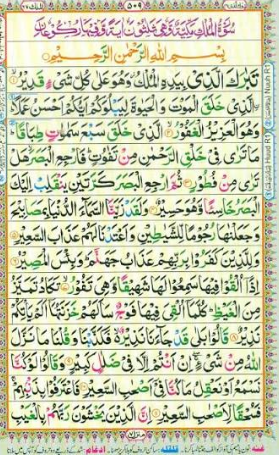 سُوْرَةُ الْمُلْكِ مَكِّيَّةٌ وَّهِيَ ثَلٰثُوْنَ اٰيَةً وَّفِيْهَا رُكُوْعَانِ
بِسْمِ اللّٰهِ الرَّحْمٰنِ الرَّحِيْمِ
تَبٰرَكَ الَّذِيْ بِيَدِهِ الْمُلْكُ وَهُوَ عَلٰى كُلِّ شَيْءٍ قَدِيْرُ
الَّذِيْ خَلَقَ الْمَوْتَ وَالْحَيٰوةَ لِيَبْلُوَكُمْ اَيُّكُمْ اَحْسَنُ عَمَلًا
وَهُوَ الْعَزِيْزُ الْغَفُوْرُ الَّذِيْ خَلَقَ سَبْعَ سَمٰوٰتٍ طِبَاقًا
مَا تَرٰى فِيْ خَلْقِ الرَّحْمٰنِ مِنْ تَفٰوُتٍ فَارْجِعِ الْبَصَرَ هَلْ
تَرٰى مِنْ فُطُوْرٍ ثُمَّ ارْجِعِ الْبَصَرَ كَرَّتَيْنِ يَنْقَلِبْ اِلَيْكَ
الْبَصَرُ خَاسِئًا وَّهُوَ حَسِيْرٌ وَلَقَدْ زَيَّنَّا السَّمَآءَ الدُّنْيَا بِمَصَابِيْحَ
وَجَعَلْنٰهَا رُجُوْمًا لِّلشَّيٰطِيْنِ وَاَعْتَدْنَا لَهُمْ عَذَابَ السَّعِيْرِ
وَلِلَّذِيْنَ كَفَرُوْا بِرَبِّهِمْ عَذَابُ جَهَنَّمَ وَبِئْسَ الْمَصِيْرُ
اِذَآ اُلْقُوْا فِيْهَا سَمِعُوْا لَهَا شَهِيْقًا وَّهِيَ تَفُوْرُ تَكَادُ تَمَيَّزُ
مِنَ الْغَيْظِ كُلَّمَآ اُلْقِيَ فِيْهَا فَوْجٌ سَاَلَهُمْ خَزَنَتُهَآ اَلَمْ يَاْتِكُمْ
نَذِيْرٌ قَالُوْا بَلٰى قَدْ جَآءَنَا نَذِيْرٌ فَكَذَّبْنَا وَقُلْنَا مَا نَزَّلَ
اللّٰهُ مِنْ شَيْءٍ اِنْ اَنْتُمْ اِلَّا فِيْ ضَلٰلٍ كَبِيْرٍ وَقَالُوْا لَوْ كُنَّا
نَسْمَعُ اَوْ نَعْقِلُ مَا كُنَّا فِيْٓ اَصْحٰبِ السَّعِيْرِ فَاعْتَرَفُوْا بِذَنْۢبِهِمْ
فَسُحْقًا لِّاَصْحٰبِ السَّعِيْرِ اِنَّ الَّذِيْنَ يَخْشَوْنَ رَبَّهُمْ بِالْغَيْبِ